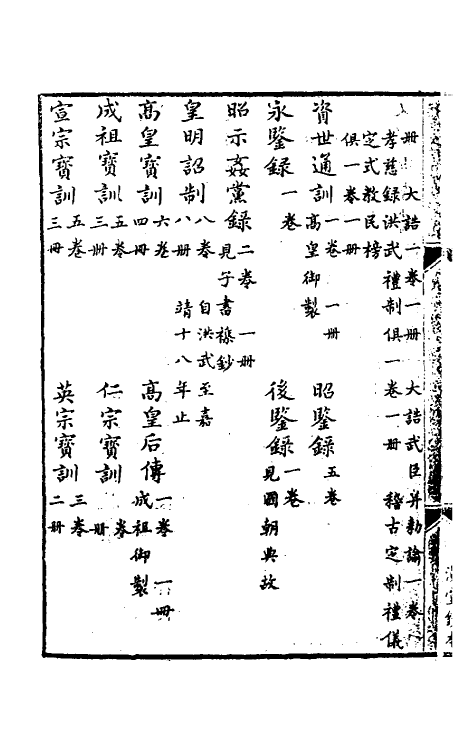 册 大誥一卷一册 大誥武臣并勅諭一卷
孝慈錄洪武禮制俱一卷一册 稽古定制禮儀
定式教民榜
俱一卷一册
資世通訓一卷 一册 高皇御製 昭鑒錄五卷
永鑒錄一卷 後鑒錄一卷 見國朝典故
昭示姦黨錄二卷 一册 見子書襍鈔
皇明詔制八卷 八册 自洪武至嘉靖十八年止
高皇寶訓六卷 四册 高皇后傳一卷 一册 成祖御製
成祖寶訓五卷 三册 仁宗寶訓 卷 册
宣宗寶訓五卷 三册 英宗寶訓三卷 二册